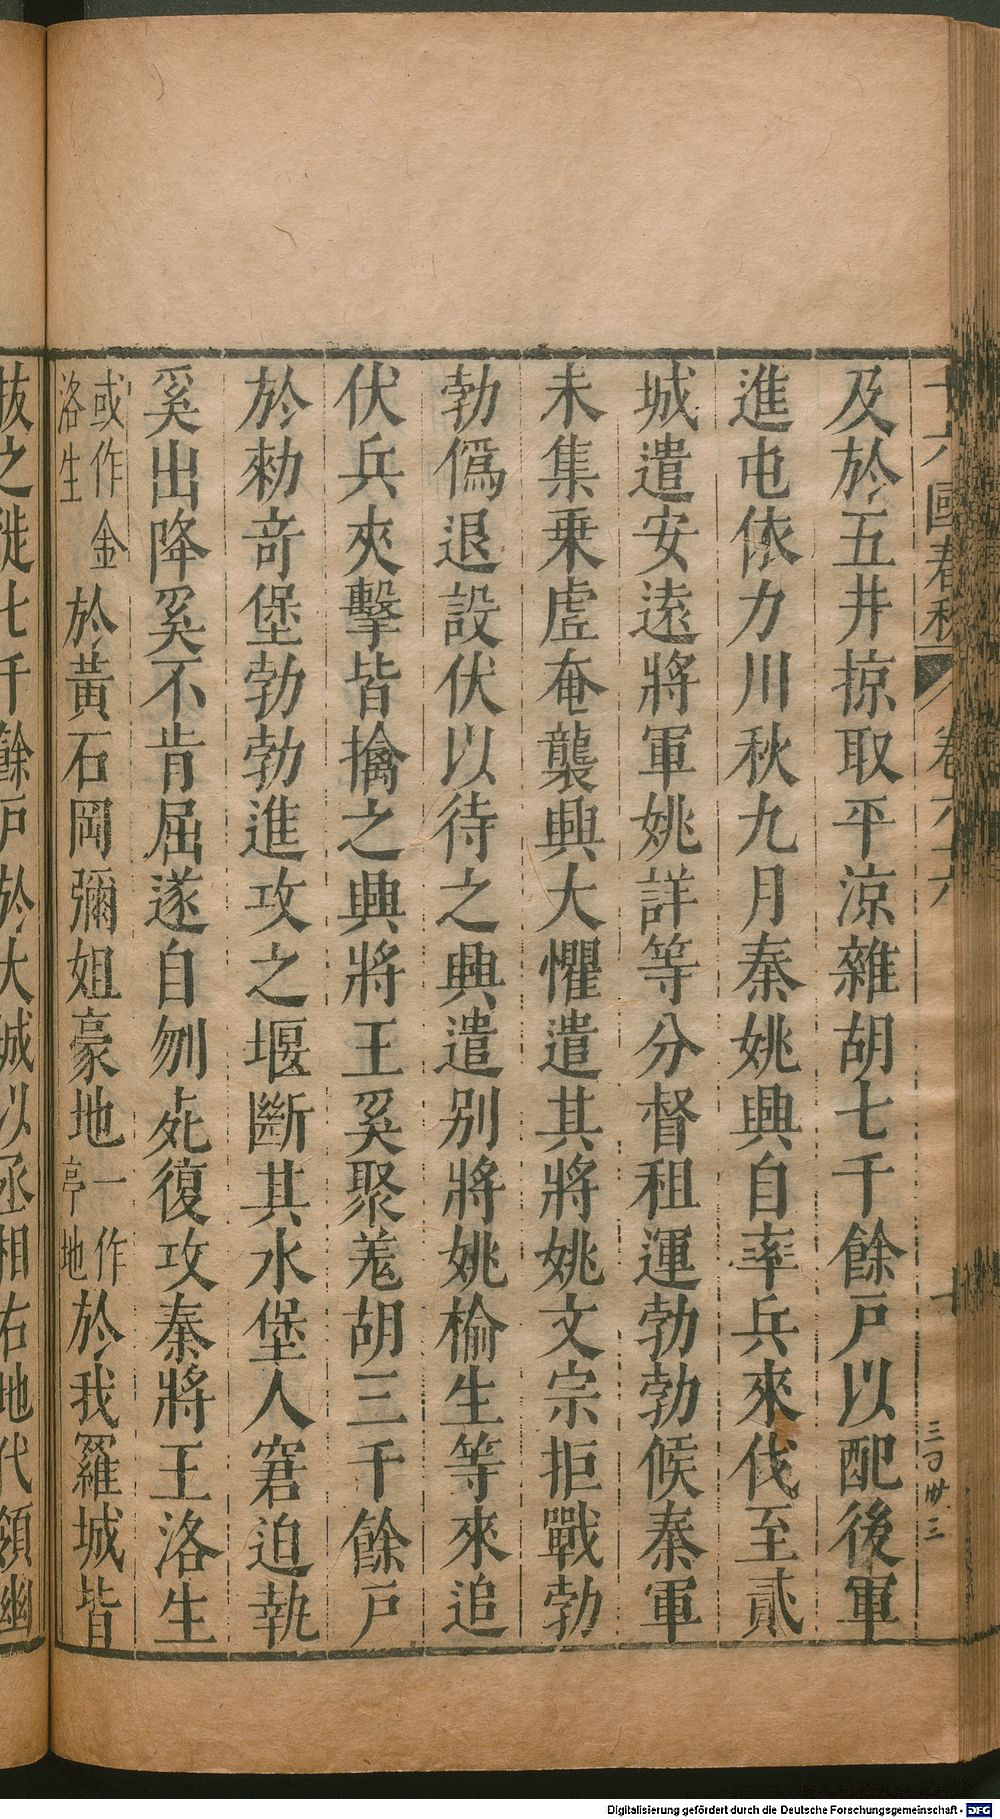 十六國春秋 卷六十六 十
及於五井掠取平涼雜胡七千餘戶以配後軍
進屯依力川秋九月秦姚興自率兵來伐至貳
城遣安遠將軍姚詳等分督租運勃勃候秦軍
未集乗虗奄襲興大懼遣其將姚文宗拒戰勃
勃僞退設伏以待之興遣別將姚榆生等來追
伏兵夾擊皆擒之興將王奚聚羗胡三千餘戶
於勑竒堡勃勃進攻之堰斷其水堡人窘迫執
奚出降奚不肯屈遂自刎死復攻秦將王洛生
或作金
洛生
於黃石岡彌姐豪地
一作
亭地
於我羅城皆
拔之徙七千餘戶於大城以丞相右地代領幽
Digitalisierung gefördert durch die Deutsche Forschungsgemeinschaft - DFG